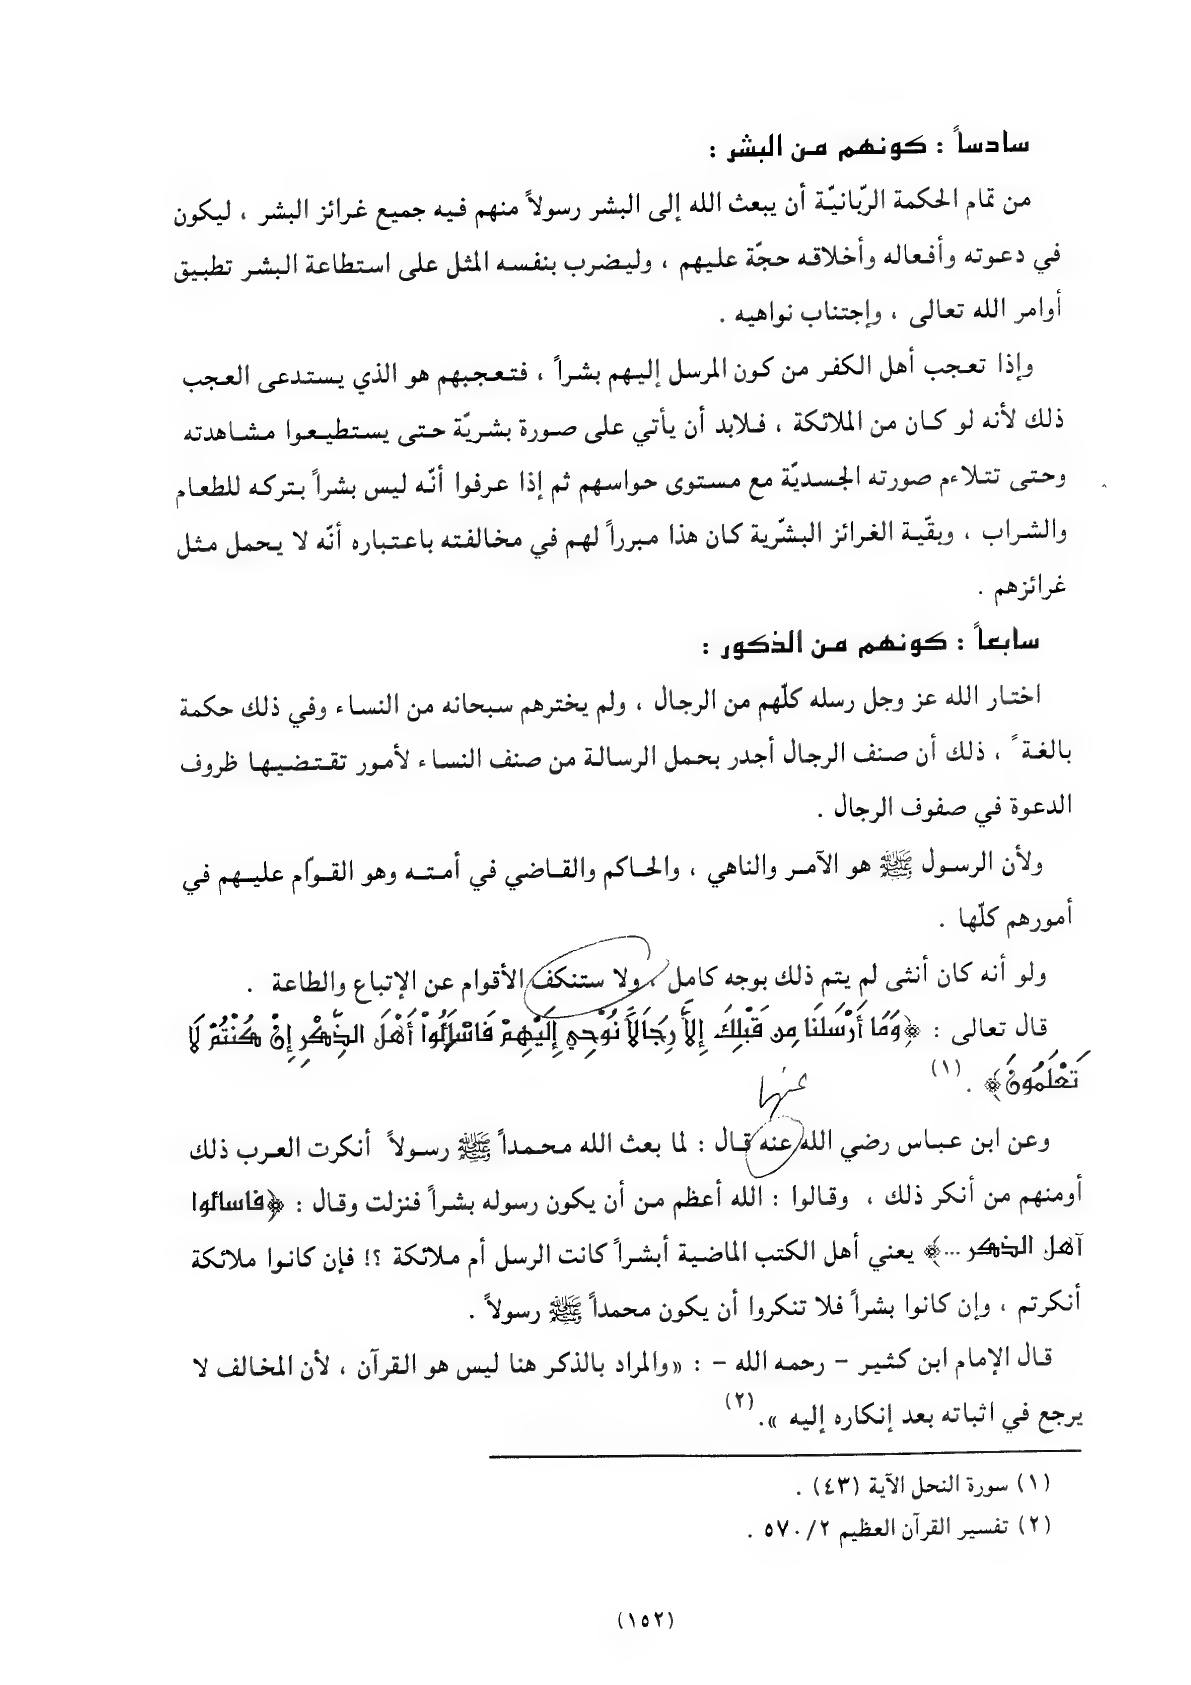 سادساً : كونهم من البشر :
من تمام الحكمة الربّانيّة أن يبعث الله إلى البشر رسولاً منهم فيه جميع غرائز البشر ، ليكون
في دعوته وأفعاله وأخلاقه حجّة عليهم ، وليضرب بنفسه المثل على استطاعة البشر تطبيق
أوامر الله تعالى ، وإجتناب نواهيه .
وإذا تعجب أهل الكفر من كون المرسل إليهم بشراً ، فتعجبهم هو الذي يستدعى العجب
ذلك لأنه لو كان من الملائكة ، فلابد أن يأتي على صورة بشريّة حتى يستطيعوا مشاهدته
وحتى تتلاءم صورته الجسديّة مع مستوى حواسهم ثم إذا عرفوا أنّه ليس بشراً بتركه للطعام
والشراب ، وبقّية الغرائز البشّرية كان هذا مبرراً لهم في مخالفته باعتباره أنّه لا يحمل مثل
غرائزهم .
سابعاً : كونهم من الذكور :
اختار الله عز وجل رسله كلّهم من الرجال ، ولم يخترهم سبحانه من النساء وفي ذلك حكمة
بالغة ً ، ذلك أن صنف الرجال أجدر بحمل الرسالة من صنف النساء لأمور تقتضيها ظروف
الدعوة في صفوف الرجال .
ولأن الرسول ﷺ هو الآمر والناهي ، والحاكم والقاضي في أمته وهو القوّام عليهم في
أمورهم كلّها .
ولو أنه كان أنثى لم يتم ذلك بوجه كامل ، ولا ستنكف الأقوام عن الإتباع والطاعة .
قال تعالى : ﴿وَمَا أَرْسَلنَا مِن قَبْلِكَ إِلاَّ رِجَالاً نُوْحِي إِلَيْهِمْ فَاسْأَلُواْ أَهْلَ الذِّكْرِ إِنْ كُنْتُمْ لَا
تَعْلَمُونَ﴾ . (١)
عنها
وعن ابن عباس رضي الله عنه قال : لما بعث الله محمداً ﷺ رسولاً أنكرت العرب ذلك
أومنهم من أنكر ذلك ، وقالوا : الله أعظم من أن يكون رسوله بشراً فنزلت وقال : ﴿فاسالوا
آهل الذكر ...﴾ يعني أهل الكتب الماضية أبشراً كانت الرسل أم ملائكة ؟! فإن كانوا ملائكة
أنكرتم ، وإن كانوا بشراً فلا تنكروا أن يكون محمداً ﷺ رسولاً .
قال الإمام ابن كثير – رحمه الله – : «والمراد بالذكر هنا ليس هو القرآن ، لأن المخالف لا
يرجع في اثباته بعد إنكاره إليه ». (٢)
(١) سورة النحل الآية (٤٣) .
(٢) تفسير القرآن العظيم ٥٧٠/٢ .
(١٥٢)